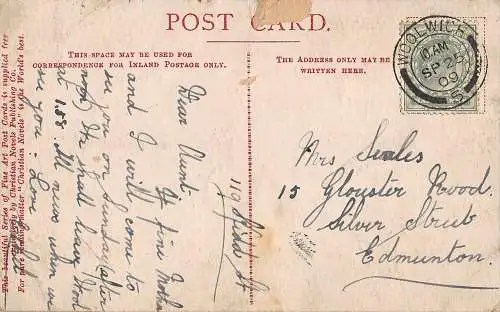 POST CARD.
THIS SPACE MAY BE USED FOR
CORRESPONDENCE FOR INLAND POSTAGE ONLY.
THE ADDRESS ONLY MAY BE
WRITTEN HERE.
WOOLWICH
10 AM
SP 25
09
S
This beautiful Series of Fine Art Post Cards is supplied free
exclusively by Christian Novels Publishing Co.
For pure reading matter "Christian Novels" is the World's best.
Dear Aunt
If fine Mother
and I will come to
see you on Sunday after
noon. We shall leave Wool
at 1.58. All news when we
see you. Love
Mrs Seales
15 Glouster Road.
Silver Street
Edmunton.